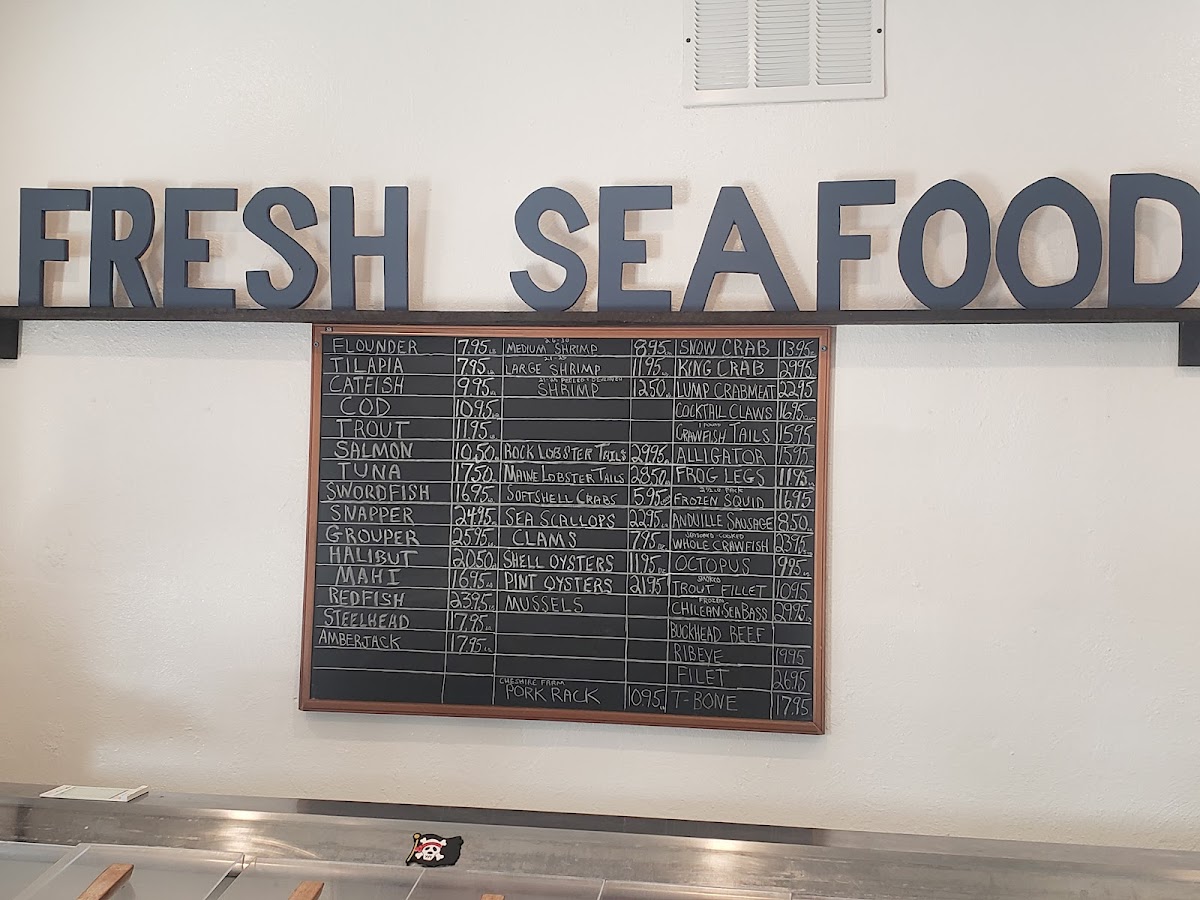 FRESH SEAFOOD
FLOUNDER 7.95 LB
TILAPIA 7.95 LB
CATFISH 9.95 LB
COD 10.95
TROUT 11.95
SALMON 10.50
TUNA 17.50
SWORDFISH 16.95
SNAPPER 24.95
GROUPER 25.95
HALIBUT 20.50
MAHI 16.95
REDFISH 23.95
STEELHEAD 17.95
AMBERJACK 17.95
26-30
MEDIUM SHRIMP 8.95
21-25
LARGE SHRIMP 11.95
21-25 PEELED & DEVEINED
SHRIMP 12.50
ROCK LOBSTER TAILS 29.95
MAINE LOBSTER TAILS 28.50
SOFTSHELL CRABS 5.95
SEA SCALLOPS 22.95
CLAMS 7.95
SHELL OYSTERS 11.95
PINT OYSTERS 21.95
MUSSELS
CHESHIRE FARM
PORK RACK 10.95
SNOW CRAB 13.95
KING CRAB 29.95
LUMP CRABMEAT 22.95
COCKTAIL CLAWS 16.95
1 POUND
CRAWFISH TAILS 15.95
ALLIGATOR 15.95
FROG LEGS 11.95
FROZEN SQUID 16.95
ANDUILLE SAUSAGE 8.50
SEASONED-COOKED
WHOLE CRAWFISH 23.95
OCTOPUS 9.95
SMOKED
TROUT FILLET 10.95
FROZEN
CHILEAN SEA BASS 29.95
BUCKHEAD BEEF
RIBEYE 19.95
FILET 26.95
T-BONE 17.95